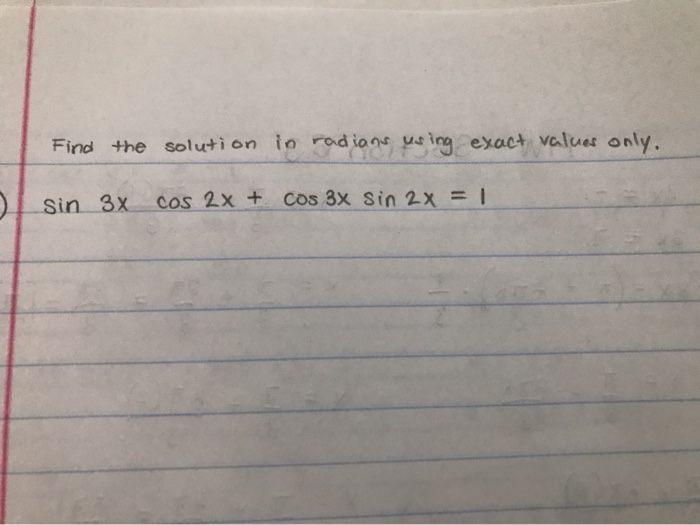 Find the solution in radians using exact values only.
sin 3x cos 2x + cos 3x sin 2x = 1